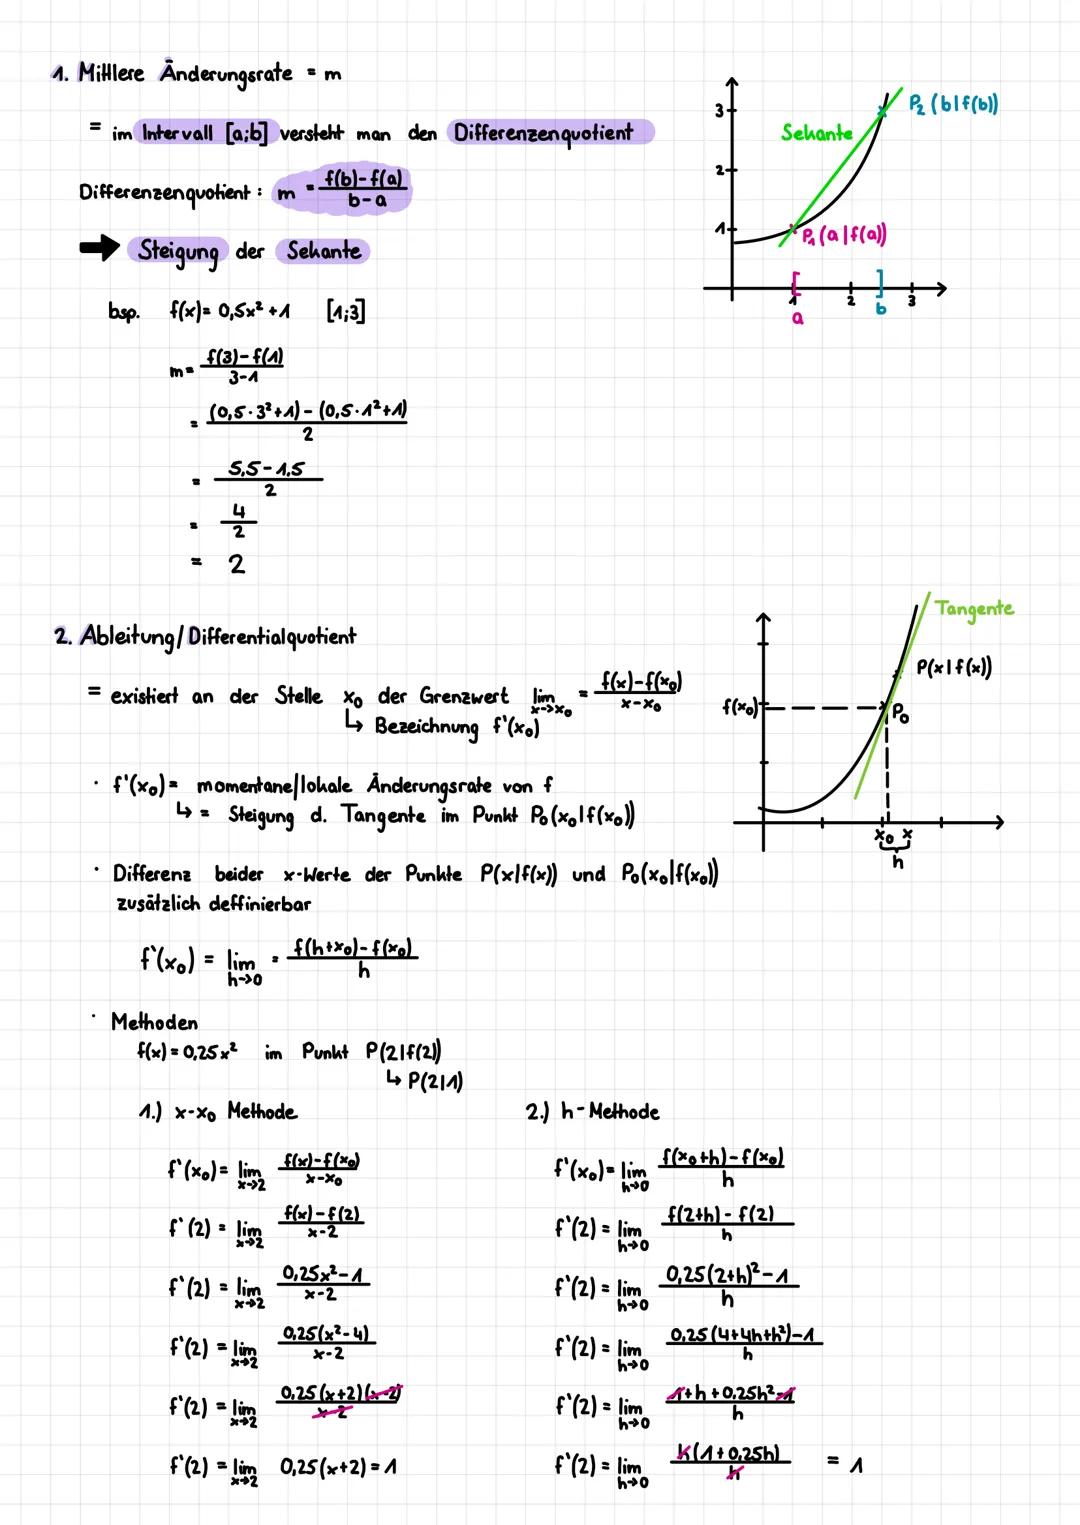 1. Mittlere Änderungsrate = m
= im Intervall [a;b] versteht man den Differenzenquotient
Differenzenquotient : m = f(b)-f(a) / b-a
➡ Steigung der Sekante
bsp. f(x)= 0,5x² +1 [1;3]
m= f(3)-f(1) / 3-1
= (0,5·3²+1)-(0,5·1²+1) / 2
= 5,5-1,5 / 2
= 4 / 2
= 2
3
2
1
Sekante
P₂ (b|f(b))
P₁ (a|f(a))
[ ]
1 2 3
a b
2. Ableitung/Differentialquotient
= existiert an der Stelle x₀ der Grenzwert lim x->x₀ = f(x)-f(x₀) / x-x₀
↳ Bezeichnung f'(x₀)
· f'(x₀)= momentane/lokale Änderungsrate von f
↳ = Steigung d. Tangente im Punkt P₀(x₀|f(x₀))
· Differenz beider x-Werte der Punkte P(x|f(x)) und P₀(x₀|f(x₀))
zusätzlich deffinierbar
f'(x₀) = lim h->0 = f(h+x₀)-f(x₀) / h
Tangente
P(x|f(x))
f(x₀)
P₀
x₀ x
h
· Methoden
f(x)=0,25x² im Punkt P(2|f(2))
↳ P(2|1)
1.) x-x₀ Methode
f'(x₀)= lim x->2 f(x)-f(x₀) / x-x₀
f'(2) = lim x->2 f(x)-f(2) / x-2
f'(2) = lim x->2 0,25x²-1 / x-2
f'(2) = lim x->2 0,25(x²-4) / x-2
f'(2) = lim x->2 0,25(x+2)(x-2) / x-2
f'(2) = lim x->2 0,25(x+2)=1
2.) h-Methode
f'(x₀)= lim h->0 f(x₀+h)-f(x₀) / h
f'(2) = lim h->0 f(2+h)-f(2) / h
f'(2) = lim h->0 0,25(2+h)²-1 / h
f'(2) = lim h->0 0,25(4+4h+h²)-1 / h
f'(2) = lim h->0 1+h+0,25h²-1 / h
f'(2) = lim h->0 h(1+0,25h) / h = 1